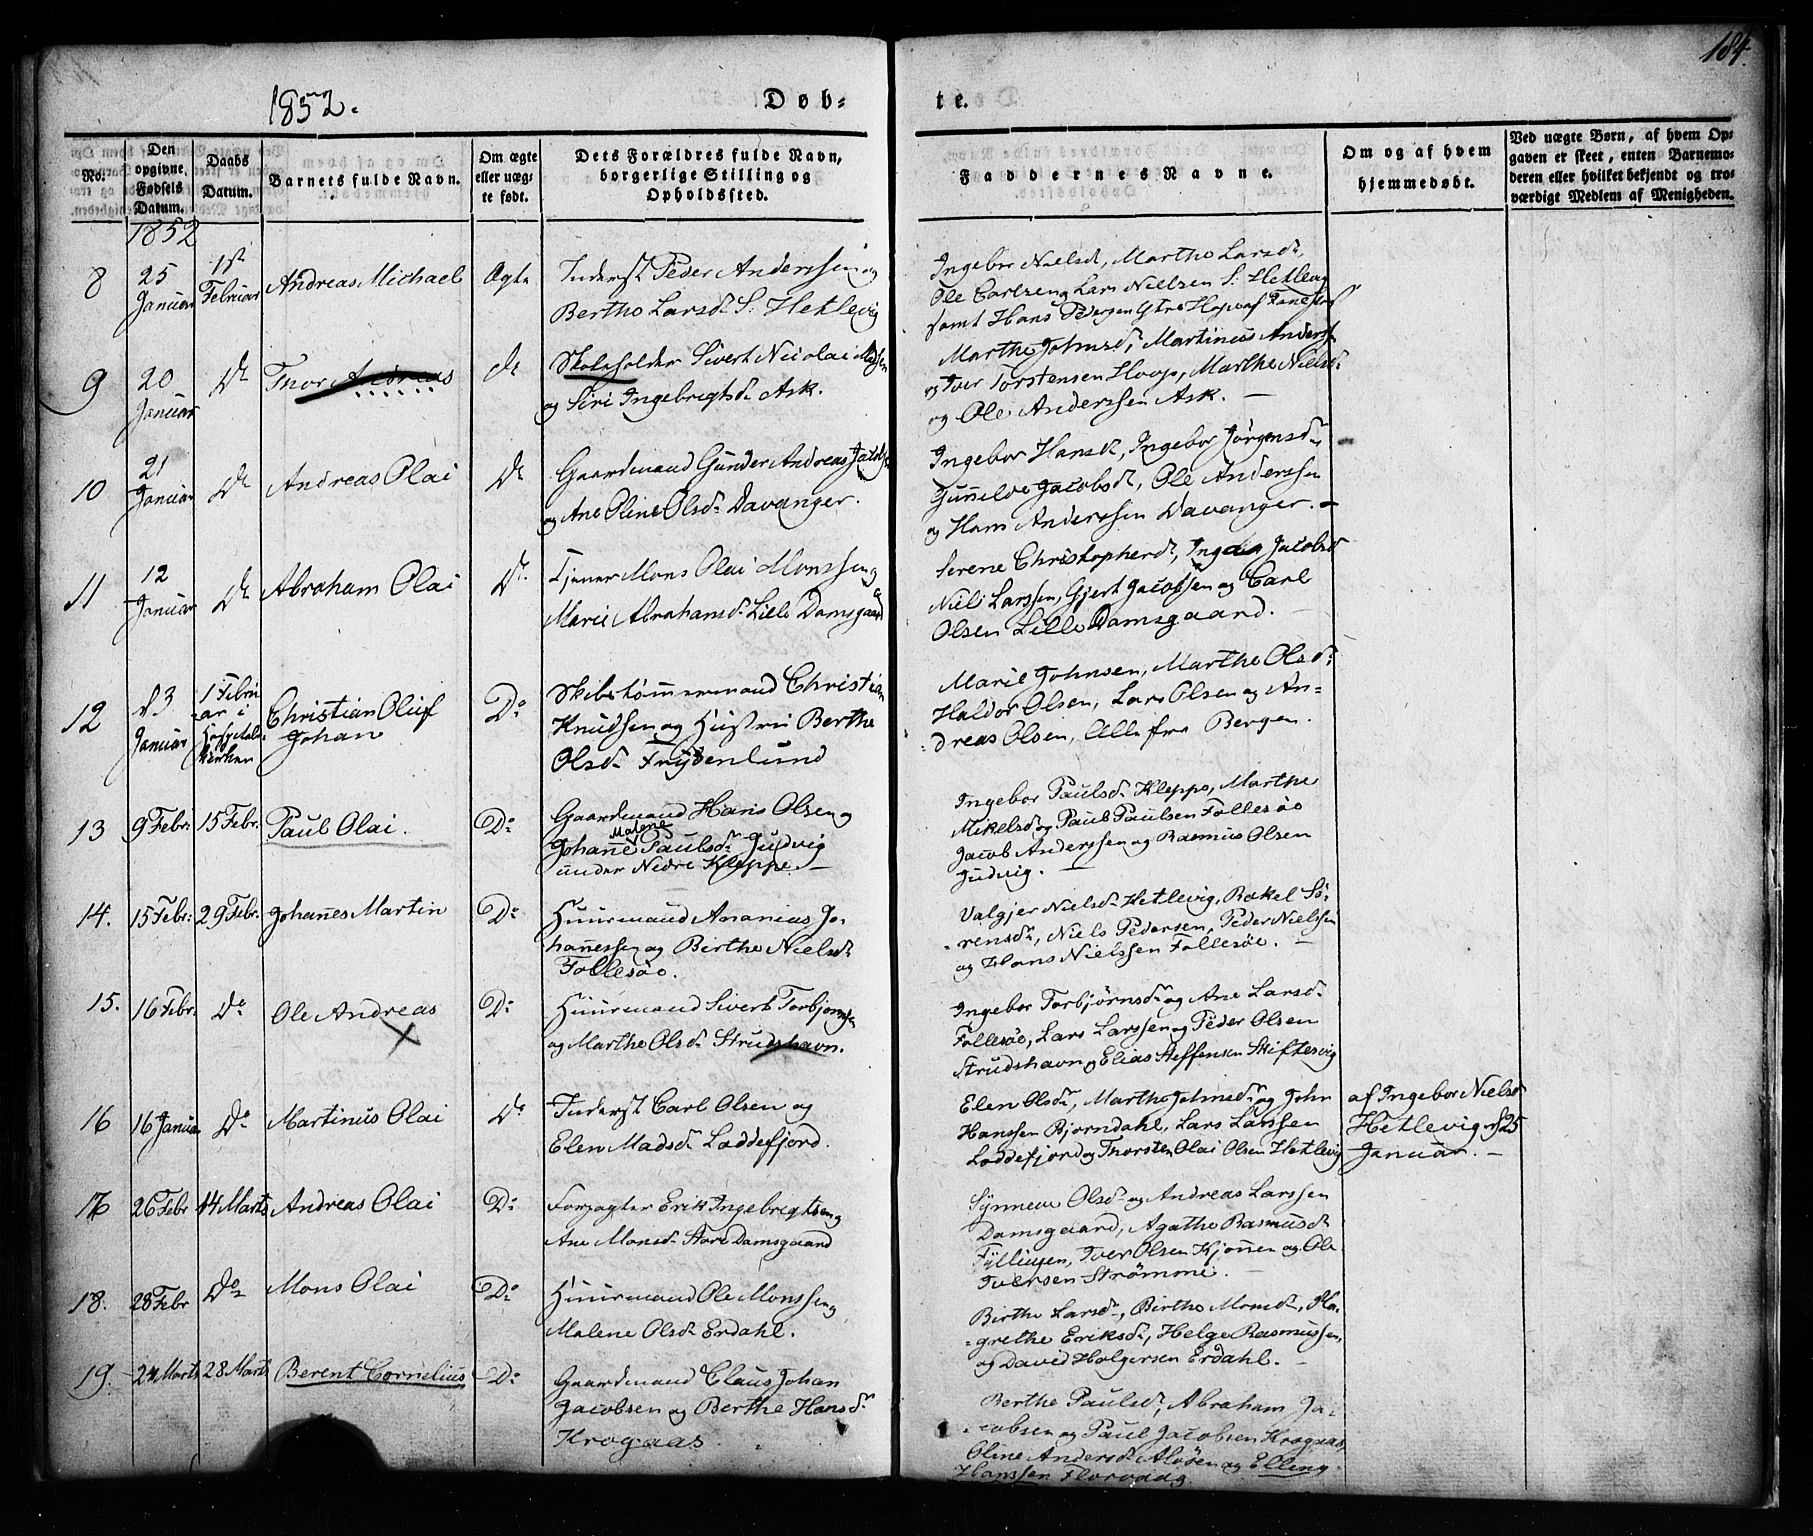 184.
1852.
Døb-
te.
No.
Den opgivne Fødsels Datum.
Daabs Datum.
Barnets fulde Navn.
Om ægte eller uægte født.
Dets Forældres fulde Navn, borgerlige Stilling og Opholdssted.
Faddernes Navne.
Om og af hvem hjemmedøbt.
Ved uægte Børn, af hvem Opgaven er skeet, enten Barnemoderen eller hvilket bekjendt og troværdigt Medlem af Menigheden.
1852
8
25 Januar
1st Februar
Andreas Michael
Ægte
Inderst Peder Anderssen og
Bertho Larsd. S. Hetlevig
Ingebor Nielsd, Martho Larsd,
Ole Carlsen og Lars Nielsen S. Hetlevig
samt Hans Pedersen
9
20 Januar
Do
Thor Andreas
do
Skoleholder Sivert Nicolai Madsen
og Siri Ingebrigtsd. Ask.
Marthe Johnsd, Martinus Anders.
og Iver Torstensen Hoop, Marthe Nielsd.
og Ole Anderssen Ask. —
10
21 Januar
Do
Andreas Olai
Do
Gaardmand Gunder Andreas Jacobsen
og Ane Oline Olsd. Davanger.
Ingebor Hansd, Ingebor Jørgensd.
Gunnilde Jacobsd, Ole Anderssen
og Hans Anderssen Davanger. —
11
12 Januar
Do
Abraham Olai
Do
Tjener Mons Olai Monssen og
Marie Abrahamsd. Lille Damsgaard
Serene Christopherd, Jacobsd
Niels Larssen, Gjert Jacobsen og Carl
Olsen Lille Damsgaard.
12
d 3 Januar
1 Febru-
ar i
Hospitals-
kirken
Christian Oluf
Johan
Do
Skibstømmermand Christian
Knudsen og Hustru Berthe
Olsd. Frydenlund
Marie Johnsen, Marthe Olsd.
Haldor Olsen, Lars Olsen og An-
dreas Olsen, Alle fra Bergen.
13
9 Febr:
15 Febr.
Paul Olai.
Do
Gaardmand Hans Olsen og
Malene
Johanne Paulsd. Judvig
under Nedre Kleppe. —
Ingebor Paulsd. Kleppe, Marthe
Mikelsd og Paul Paulsen Follesøe
Jacob Anderssen og Rasmus Olsen
Judvig. —
14.
15 Febr:
29 Febr.
Johannes Martin
Do
Huurmand Ananias Jo-
hannessen og Birthe Nielsd.
Follesøe.
Valgjer Nielsd. Hetlevig, Rakel Sø-
rensd, Niels Pedersen, Peder Nielssen
og Hans Nielssen Follesøe. —
15.
16 Febr.
Do
Ole Andreas
Do
Huurmand Sivert Torbjørnsen
og Marthe Olsd. Strudshavn.
Ingebor Torbjørnsd. og Ane Larsd.
Follesøe, Lars Larssen og Peder Olsen
Strudshavn og Elias Steffensen Skiftesvig
16
16 Januar
Do
Martinus Olai
Do
Inderst Carl Olsen og
Elen Madsd. Loddefjord.
Elen Olsd, Martho Johnsd. og John
Hanssen Bjorndahl, Lars Larssen
Loddefjord og Thorsten Olai Olsen Hetlevig
af Ingebor Nielsd
Hetlevig d 25
Januar. —
17
26 Febr
14 Marts
Andreas Olai
Do
Forpagter Erik Ingebrigtsen og
Ane Monsd. Store Damsgaard
Synneve Olsd. og Andreas Larssen
Damsgaard, Agathe Rasmusd.
Fyllingen, Iver Olsen Kjønnen og Ole
Iversen Strømme. —
18.
28 Febr
Do
Mons Olai
Do
Huurmand Ole Monssen og
Malene Olsd. Erdahl.
Birthe Larsd., Birtho Monsd., Ma-
grethe Eriksd, Helge Rasmussen,
og David Holgersen Erdahl. —
19.
24 Marts
28 Marts
Berent Cornelius
Do
Gaardmand Claus Johan
Jacobsen og Berthe Hansd.
Krogaas.
Berthe Paulsd, Abraham Ja-
cobsen og Paul Jacobsen Krogaas,
Oline Andersd. Aløen og Elling
Hanssen Florvaag.